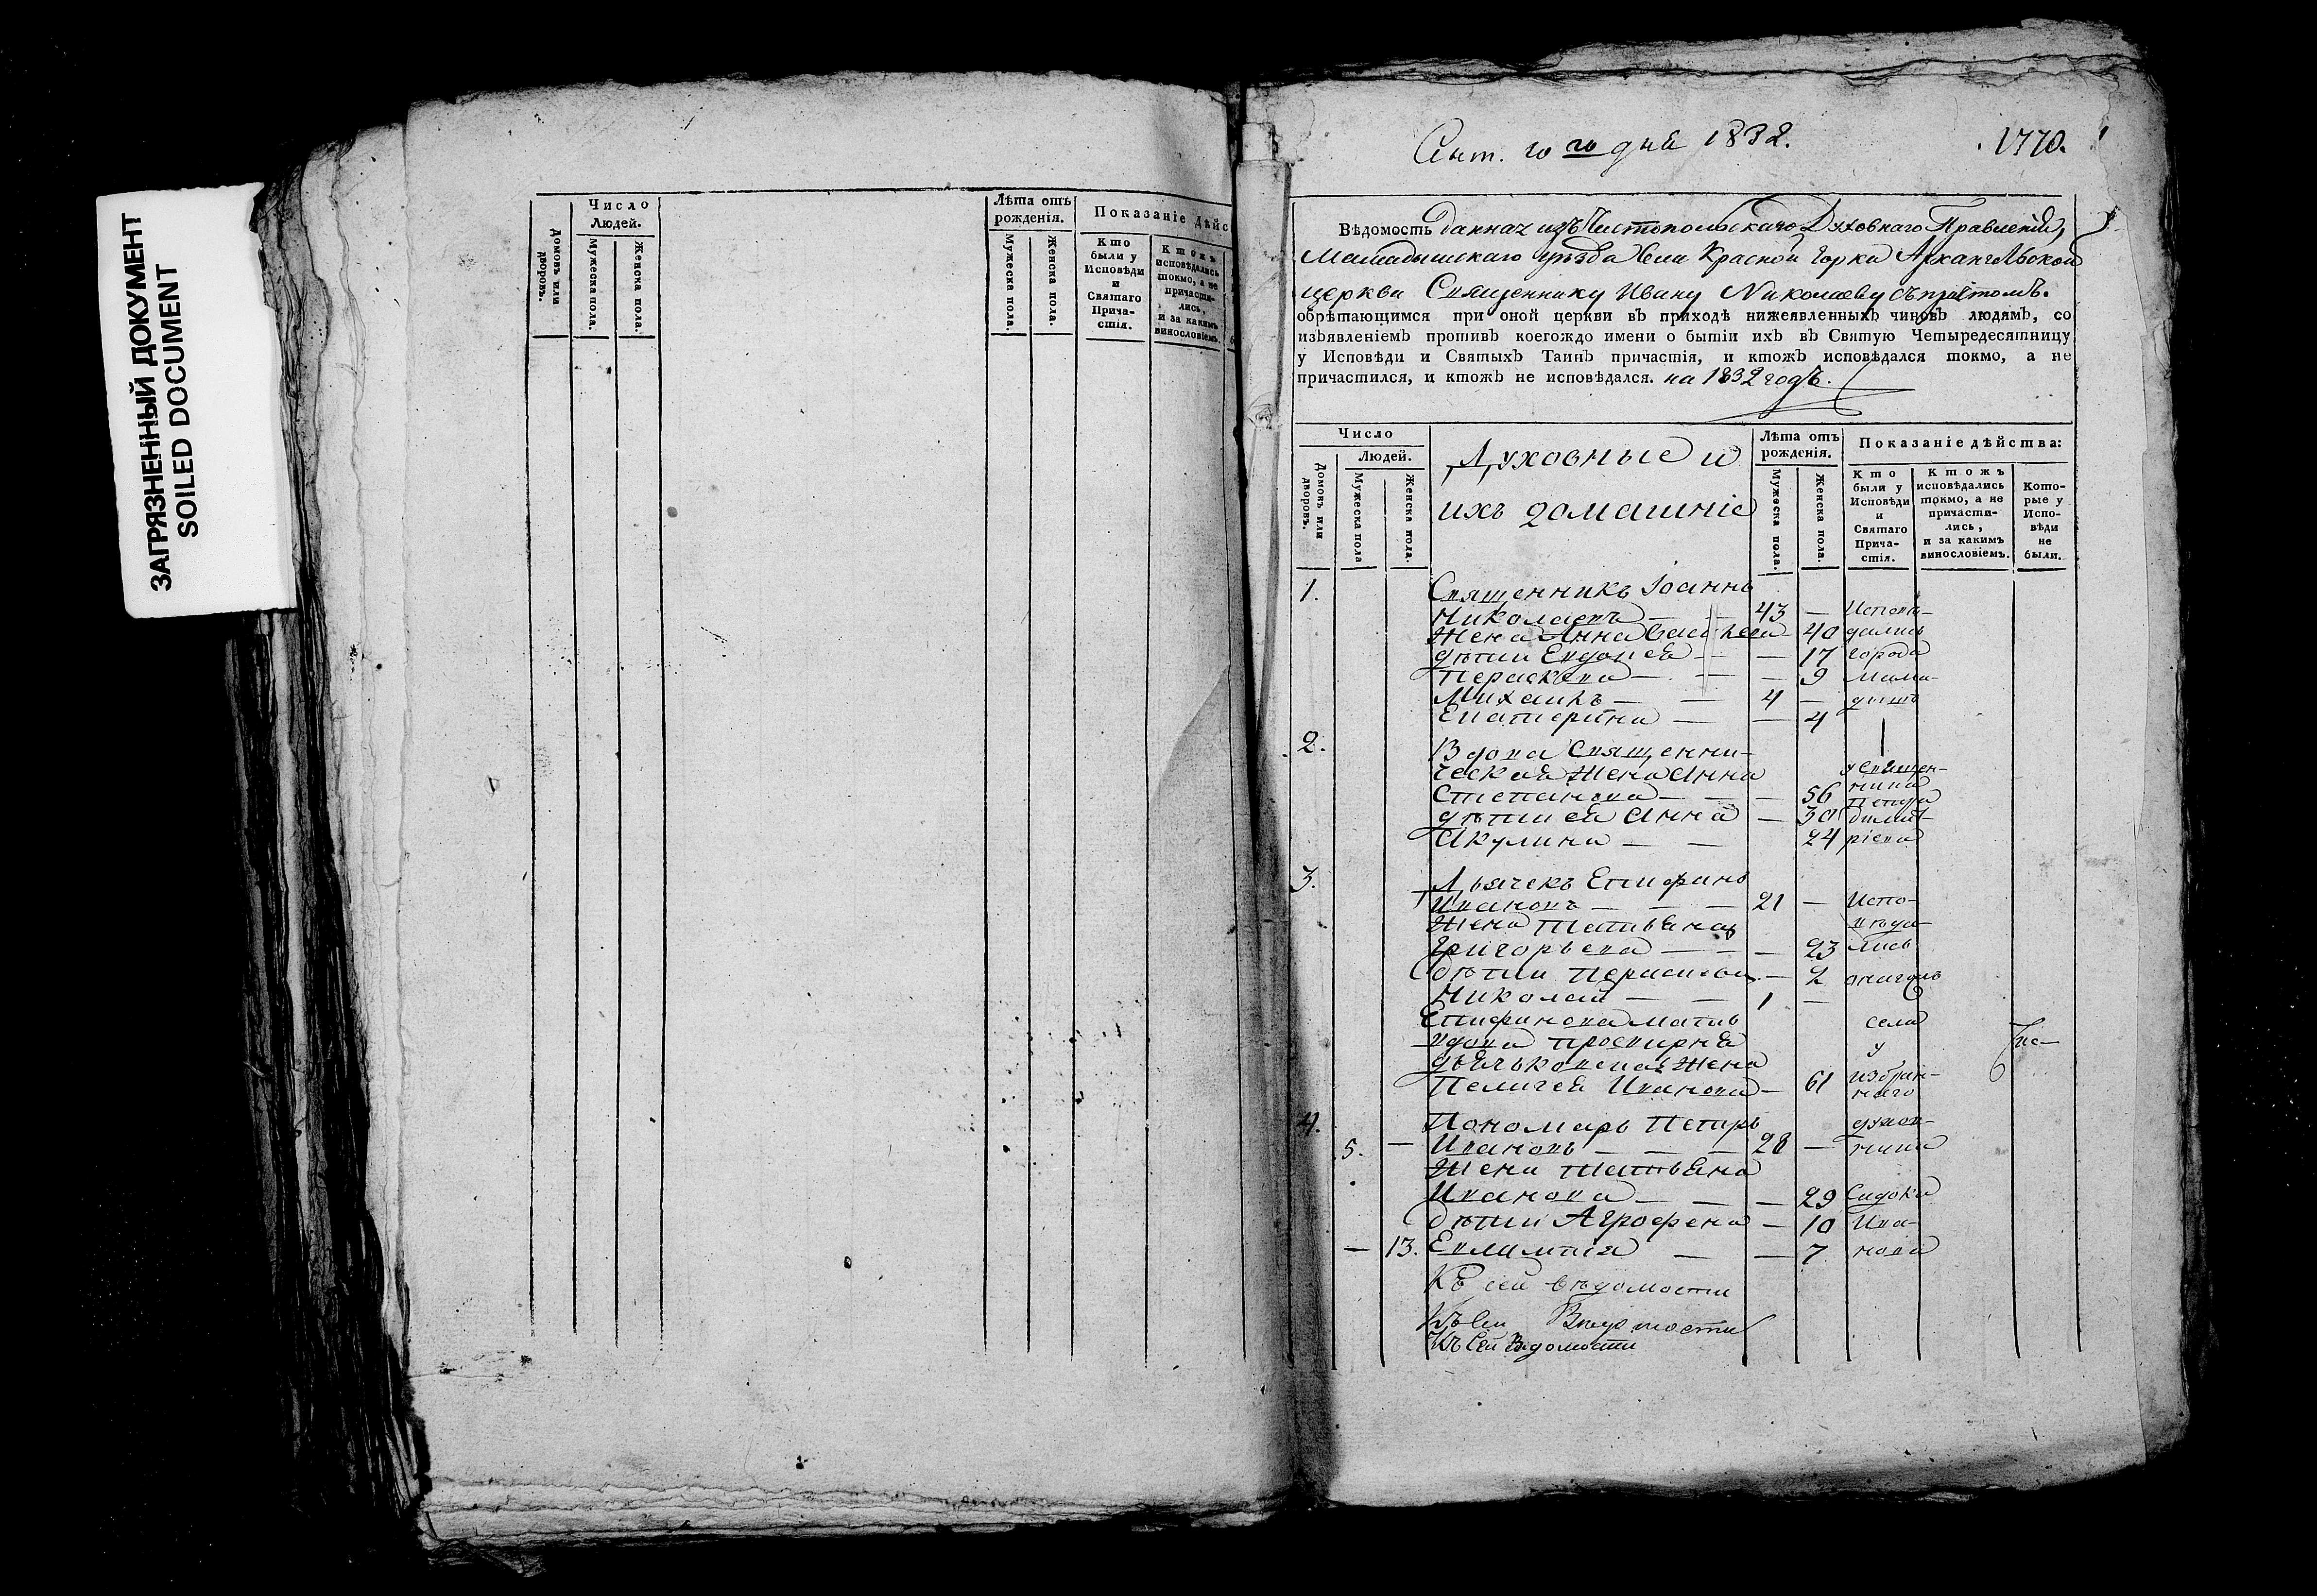 ЗАГРЯЗНЕННЫЙ ДОКУМЕНТ
SOILED DOCUMENT
Домовъ или дворовъ.
Число
Людей.
Мужеска пола.
Женска пола.
Лѣта отъ рожденія.
Мужеска пола.
Женска пола.
Показаніе дѣйс
Кто были у Исповѣди и Святаго Прича-стія.
Ктожъ исповѣдались токмо, а не причасти-лись, и за какимъ винословіемъ.
Сент. 10 го дня 1832.
1770.
Вѣдомость данная изъ Чистопольскаго Духовнаго Правленія,
Мамадышскаго уѣзда Села Красной Горки Архангельской
церкви Священнику Ивану Николаеву съ притомъ.
обрѣтающимся при оной церкви въ приходѣ нижеявленныхъ чиновъ людямъ, со
изъявленіемъ противъ коегождо имени о бытіи ихъ въ Святую Четыредесятницу
у Исповѣди и Святыхъ Таинъ причастія, и ктожъ исповѣдался токмо, а не
причастился, и ктожъ не исповѣдался. на 1832 годъ.
Число
Людей.
Домовъ или дворовъ.
Мужеска пола
Женска пола.
Духовные и
ихъ домашніе
Лѣта отъ рожденія.
Мужеска пола.
Женска пола.
Показаніе дѣйства:
Кто были у Исповѣди и Святаго Прича-стія.
Ктожъ исповѣдались токмо, а не причасти-лись, и за какимъ винословіемъ.
Кото-рые у Испо-вѣди не были.
1. Священникъ Іоаннъ
Николаевъ — 43 — Испови-
Жена Анна 40 дались
дѣти Евдокея — — 17 города
Пераскева — — 9 Мама-
Михаилъ — — 4 — дышъ
Екатерина — — 4
2. Вдова Священни-
ческая Жена Анна у Священ-
Степанова — — 56 ника
дѣти ея Анна — 30 Петра
Акулина — — 24
3. Дьячекъ Епифанъ
Ивановъ — — — 21 — Испо-
Жена Татьяна вѣда-
Григорьева — — — 23 лись
дѣти Пераскева — 2
Николай — — 1 —
Епифанова мать села
вдова просвирня у
Жена избран-
Пелагея Иванова — 61 наго
4. Пономарь Петръ духов-
5. — Ивановъ — — — 28 — ника
Жена Татьяна
Иванова — — — 29 Сидора
дѣти Агрофена — 10 Ива-
— 13. Евлампія — — 7 нова
Къ сей вѣдомости
Къ сей Вѣдомости
Къ Сей Вѣдомости